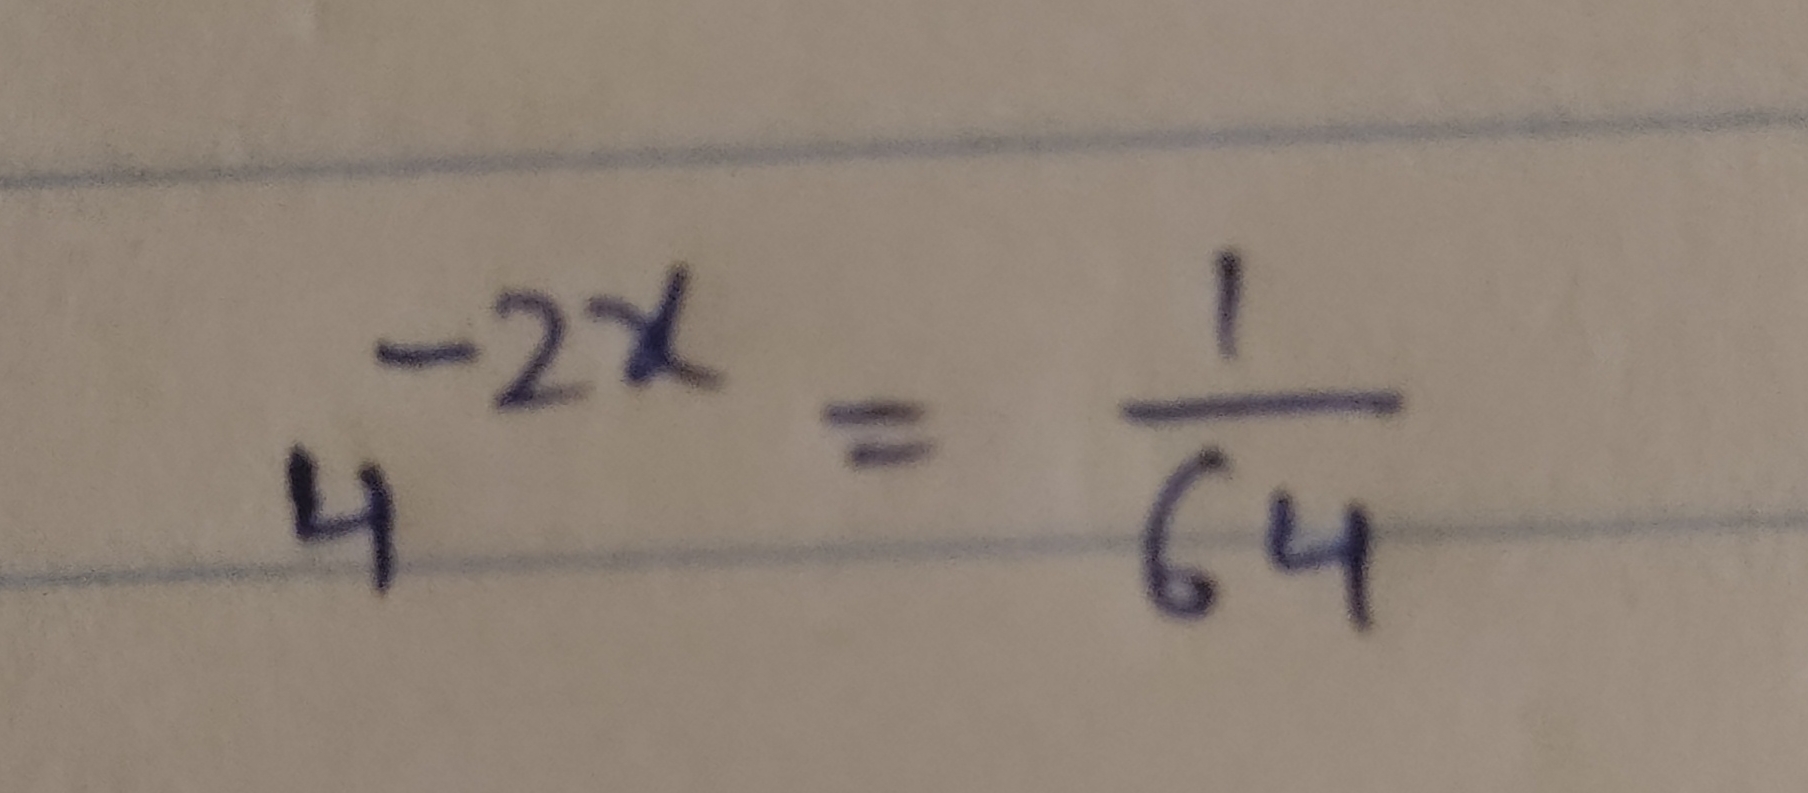 4^{-2x} = \frac{1}{64}